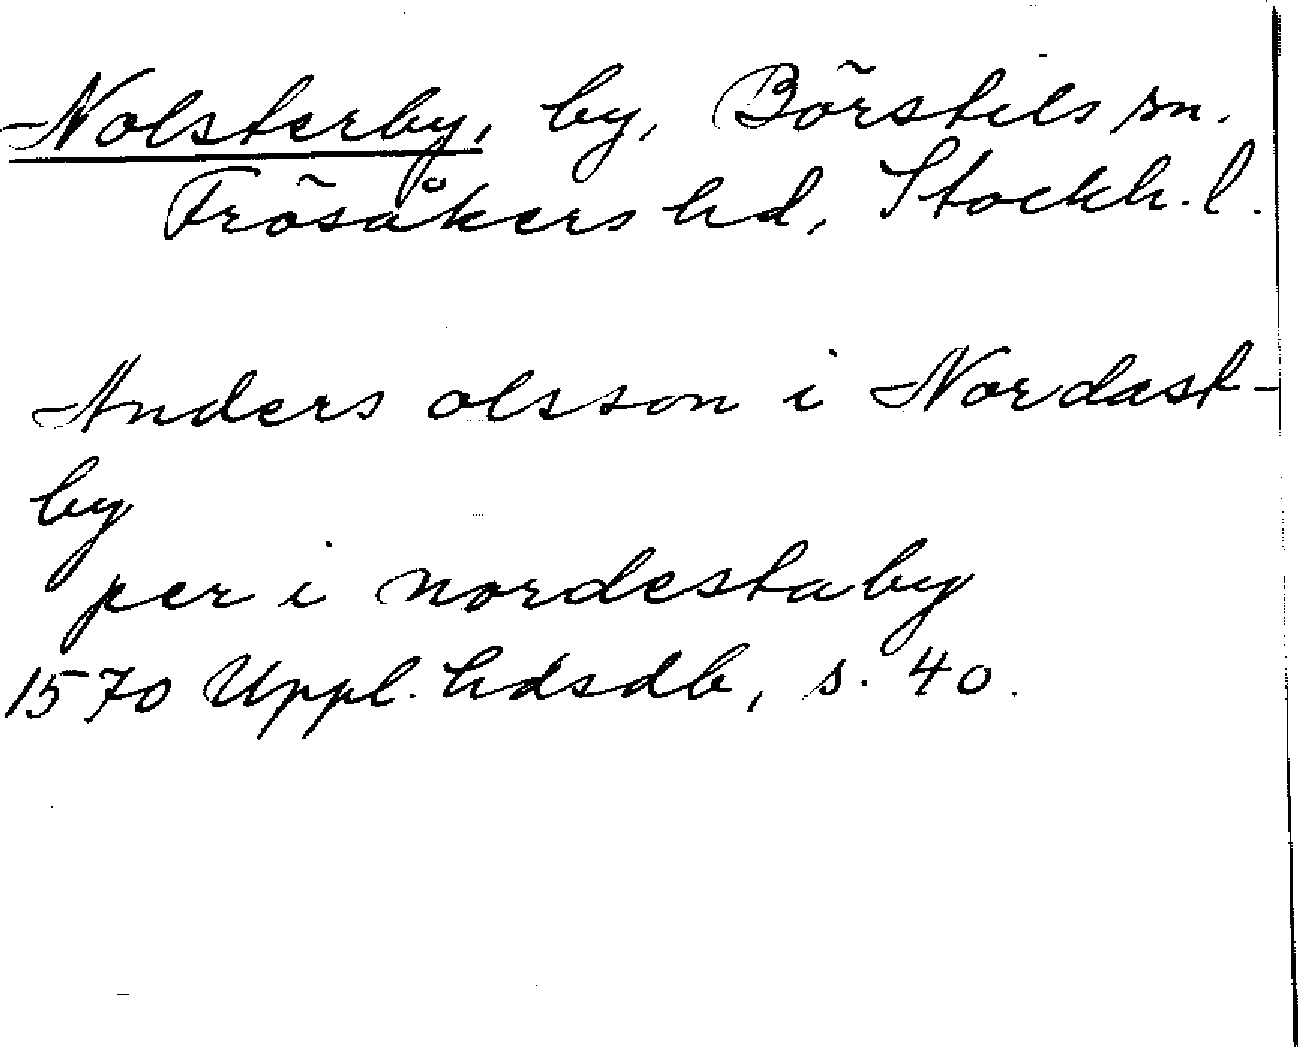 Nolsterby, by, Börstils sn.
Frösåkers hd, Stockh. l.
Anders olsson i Nordast-
by
per i nordestaby
1570 Uppl. hdsdb, s. 40.